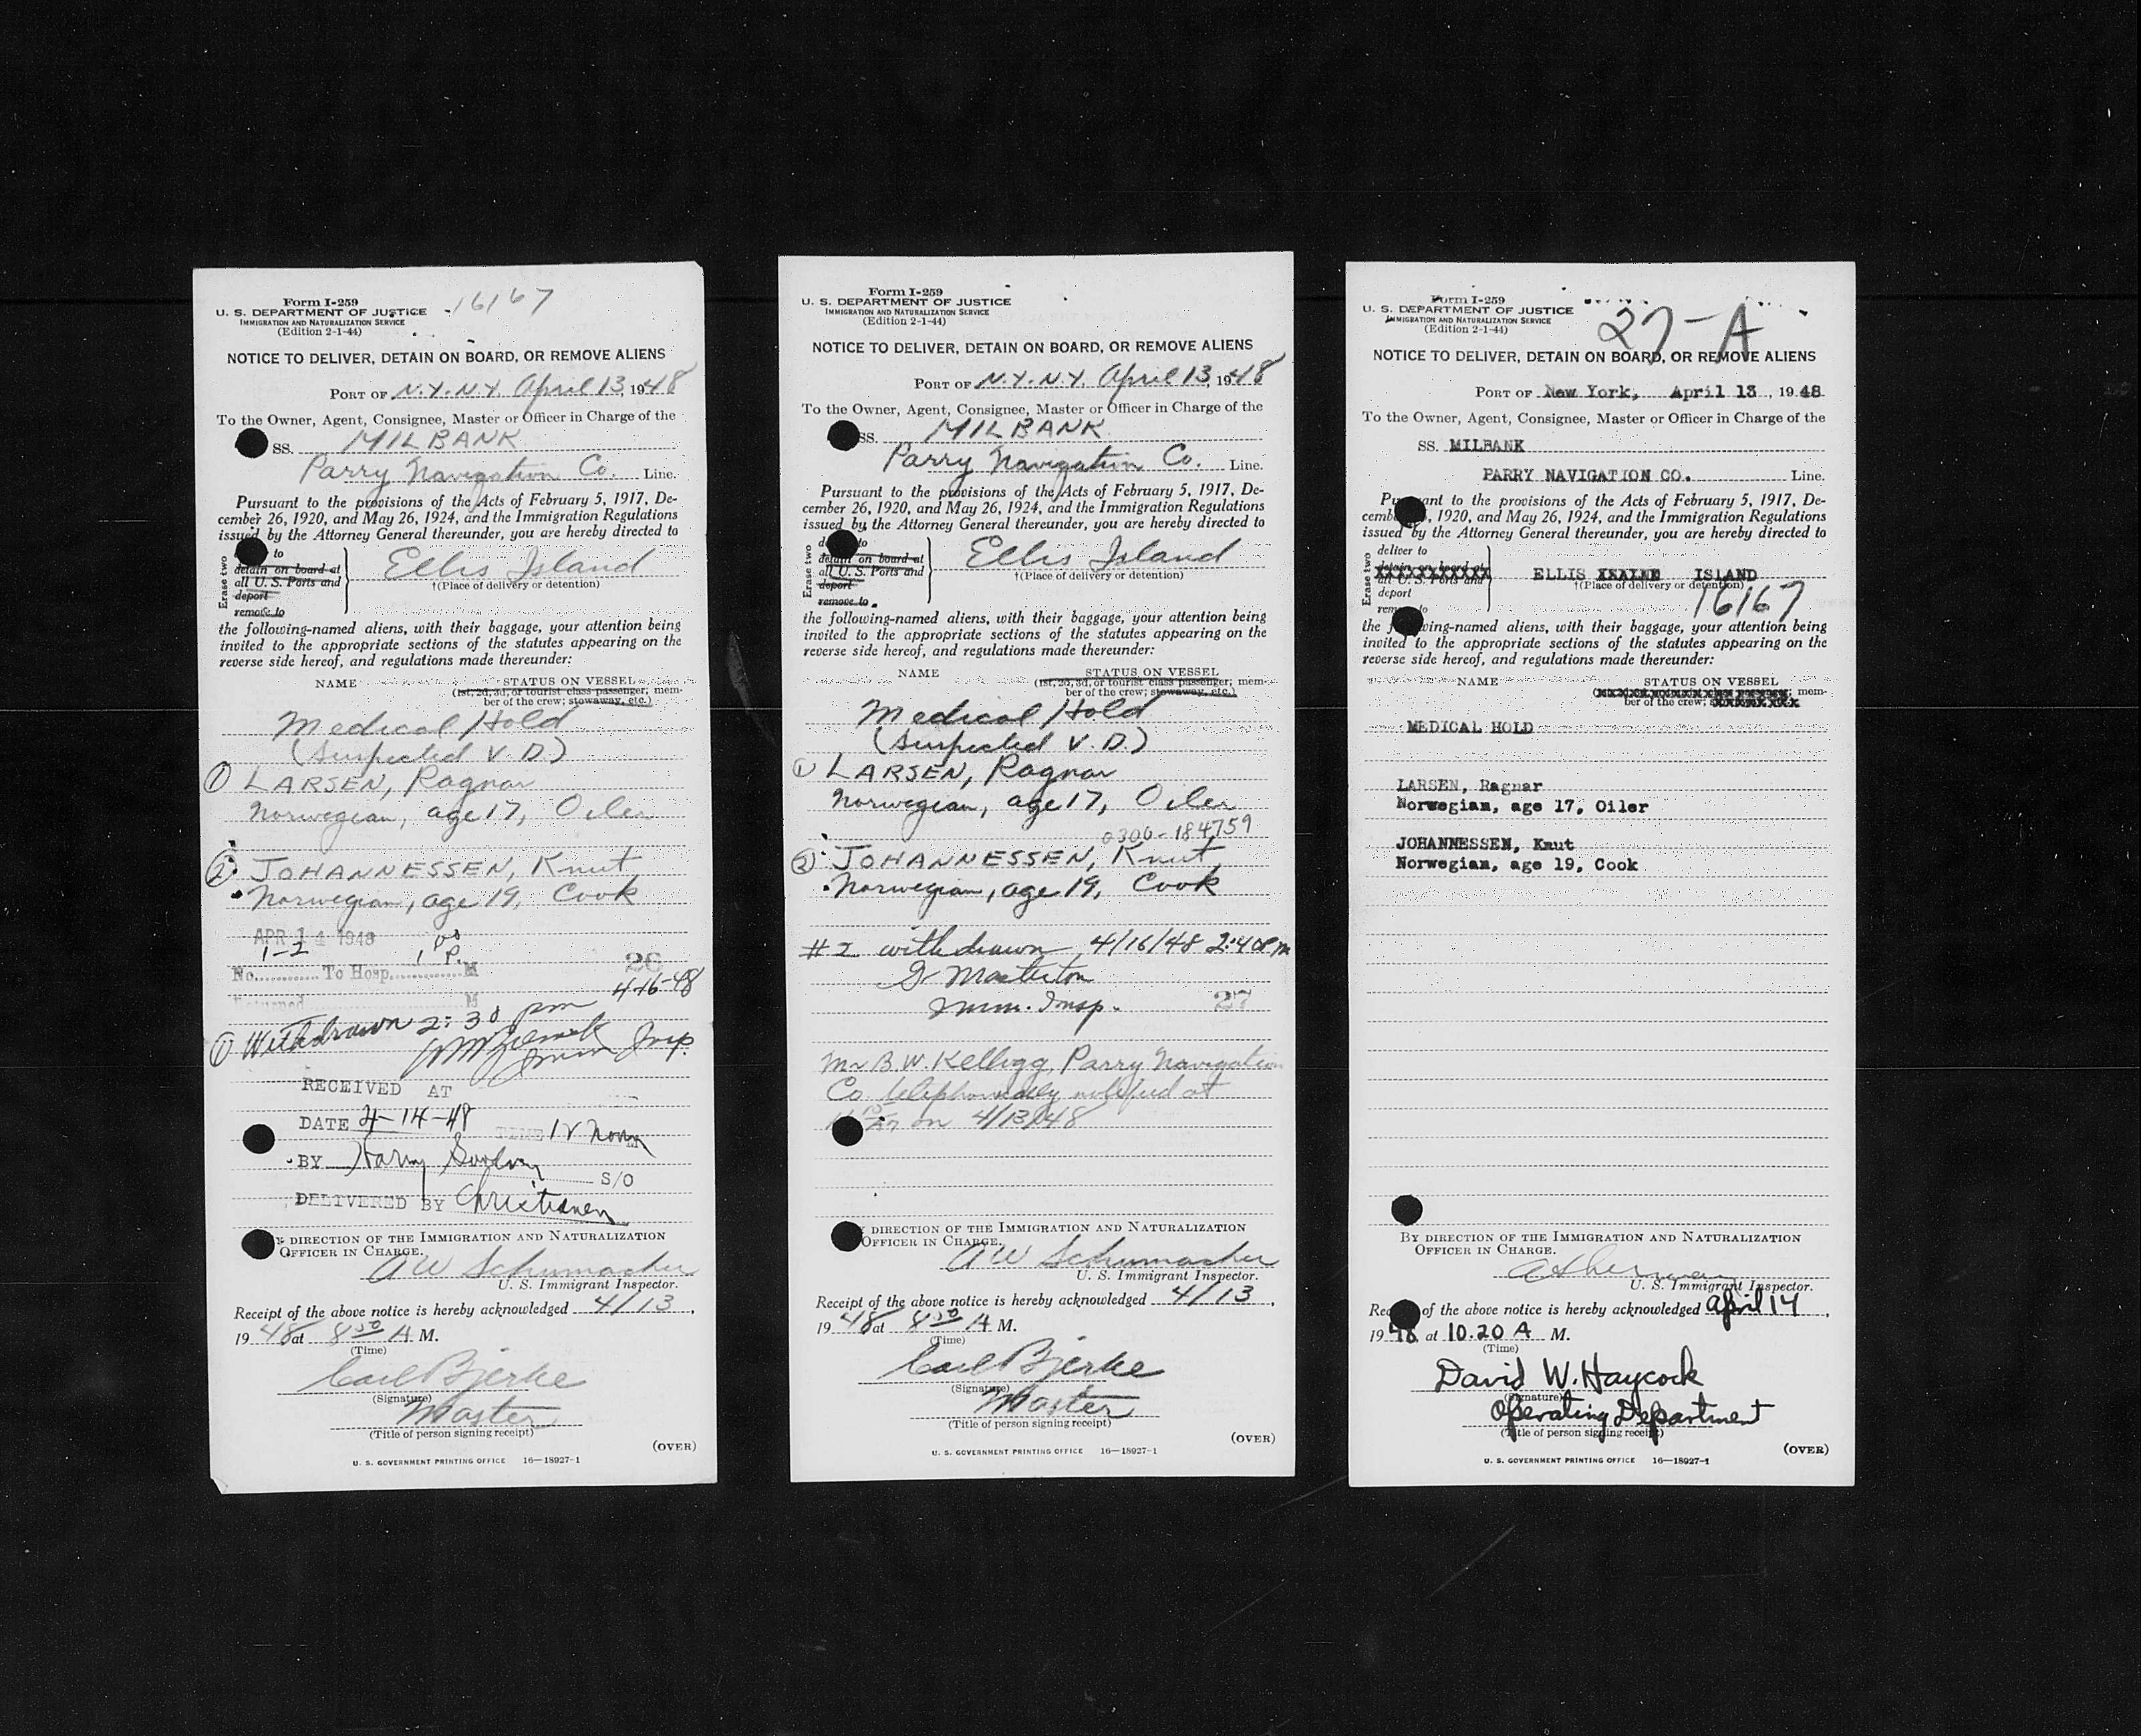 Form I-259
U. S. DEPARTMENT OF JUSTICE
IMMIGRATION AND NATURALIZATION SERVICE
(Edition 2-1-44)
16167
NOTICE TO DELIVER, DETAIN ON BOARD, OR REMOVE ALIENS
PORT OF N.Y. N.Y. April 13, 1948
To the Owner, Agent, Consignee, Master or Officer in Charge of the
SS. MILBANK
Parry Navigation Co. Line.
Pursuant to the provisions of the Acts of February 5, 1917, De-
cember 26, 1920, and May 26, 1924, and the Immigration Regulations
issued by the Attorney General thereunder, you are hereby directed to
Erase two
to
detain on board at
all U. S. Ports and
deport
remove to
Ellis Island
†(Place of delivery or detention)
the following-named aliens, with their baggage, your attention being
invited to the appropriate sections of the statutes appearing on the
reverse side hereof, and regulations made thereunder:
NAME STATUS ON VESSEL
(1st, 2d, 3d, or tourist class passenger; mem-
ber of the crew; stowaway, etc.)
Medical Hold
(Suspected V.D.)
① LARSEN, Ragnar
Norwegian, age 17, Oiler
② JOHANNESSEN, Knut
Norwegian, age 19, Cook
APR 14 1948
1-2 1 00 P.
No. To Hosp. M 26
Returned M 4-16-48
① Withdrawn 2:30 pm
Imm Insp.
RECEIVED AT
DATE 4-14-48 TIME 12 Noon
BY Harry S/O
DELIVERED BY Christiansen
DIRECTION OF THE IMMIGRATION AND NATURALIZATION
OFFICER IN CHARGE.
A W Schumacher
U. S. Immigrant Inspector.
Receipt of the above notice is hereby acknowledged 4/13,
1948 at 8 50 A M.
(Time)
Carl Bjerke
(Signature)
Master
(Title of person signing receipt)
(OVER)
U. S. GOVERNMENT PRINTING OFFICE 16—18927-1
Form I-259
U. S. DEPARTMENT OF JUSTICE
IMMIGRATION AND NATURALIZATION SERVICE
(Edition 2-1-44)
NOTICE TO DELIVER, DETAIN ON BOARD, OR REMOVE ALIENS
PORT OF N.Y. N.Y. April 13, 1948
To the Owner, Agent, Consignee, Master or Officer in Charge of the
SS. MILBANK
Parry Navigation Co. Line.
Pursuant to the provisions of the Acts of February 5, 1917, De-
cember 26, 1920, and May 26, 1924, and the Immigration Regulations
issued by the Attorney General thereunder, you are hereby directed to
Erase two
to
detain on board at
all U. S. Ports and
deport
remove to
Ellis Island
†(Place of delivery or detention)
the following-named aliens, with their baggage, your attention being
invited to the appropriate sections of the statutes appearing on the
reverse side hereof, and regulations made thereunder:
NAME STATUS ON VESSEL
(1st, 2d, 3d, or tourist class passenger; mem-
ber of the crew; stowaway, etc.)
Medical Hold
(Suspected V.D.)
① LARSEN, Ragnar
Norwegian, age 17, Oiler
0300-184759
② JOHANNESSEN, Knut,
Norwegian, age 19, Cook
#2 withdrawn 4/16/48 2:40 PM
Masterton
Imm. Insp. 27
Mr B.W. Kellogg, Parry Navigation
Co. telephonically notified at
on 4/13/48
DIRECTION OF THE IMMIGRATION AND NATURALIZATION
OFFICER IN CHARGE.
A W Schumacher
U. S. Immigrant Inspector.
Receipt of the above notice is hereby acknowledged 4/13,
1948 at 8 50 A M.
(Time)
Carl Bjerke
(Signature)
Master
(Title of person signing receipt)
(OVER)
U. S. GOVERNMENT PRINTING OFFICE 16—18927-1
Form I-259
U. S. DEPARTMENT OF JUSTICE
IMMIGRATION AND NATURALIZATION SERVICE
(Edition 2-1-44)
27-A
NOTICE TO DELIVER, DETAIN ON BOARD, OR REMOVE ALIENS
PORT OF New York, April 13, 1948
To the Owner, Agent, Consignee, Master or Officer in Charge of the
SS. MILBANK
PARRY NAVIGATION CO. Line.
Pursuant to the provisions of the Acts of February 5, 1917, De-
cember, 1920, and May 26, 1924, and the Immigration Regulations
issued by the Attorney General thereunder, you are hereby directed to
Erase two
deliver to
detain on board at
all U. S. Ports and
deport
remove to
ELLIS ISLAND
†(Place of delivery or detention)
16167
the following-named aliens, with their baggage, your attention being
invited to the appropriate sections of the statutes appearing on the
reverse side hereof, and regulations made thereunder:
NAME STATUS ON VESSEL
mem-
ber of the crew;
MEDICAL HOLD
LARSEN, Ragnar
Norwegian, age 17, Oiler
JOHANNESSEN, Knut
Norwegian, age 19, Cook
BY DIRECTION OF THE IMMIGRATION AND NATURALIZATION
OFFICER IN CHARGE.
U. S. Immigrant Inspector.
Receipt of the above notice is hereby acknowledged April 14,
1948 at 10.20 A M.
(Time)
David W. Haycock
(Signature)
Operating Department
(Title of person signing receipt)
(OVER)
U. S. GOVERNMENT PRINTING OFFICE 16—18927-1